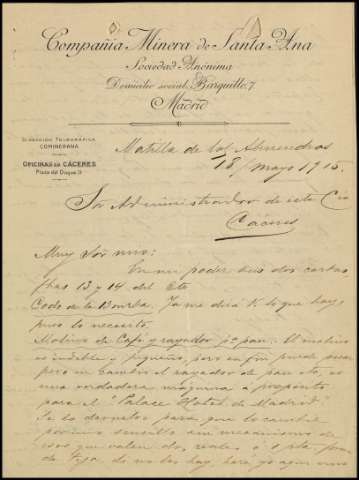 Compañía Minera de Santa Ana
Sociedad Anónima
Domicilio social, Barquillo, 7
Madrid
DIRECCIÓN TELEGRÁFICA
COMINERANA
OFICINAS EN CÁCERES
Plaza del Duque 3
Matilla de los Almendros
18/mayo 1915.
Sor Administrador de esta Cia
Cáceres
Muy Sor mio:
En mi poder sus dos cartas
fhas 13 y 14 del cte
Codo de la Bomba. Ya me dirá V. lo que hay,
pues lo necesito.
Molino de Café y rayador pa pan. El molino
es endeble y pequeño, pero en fin puede pasar
pero en cambio el rayador de pan etc, es
una verdadera máquina a propósito
para el "Palace Hotel de Madrid"
Se lo devuelvo para que lo cambie
por uno sencillo sin mecanismo de
esos que valen dos reales o 1 pta
de no los hay, hará yo aquí uno